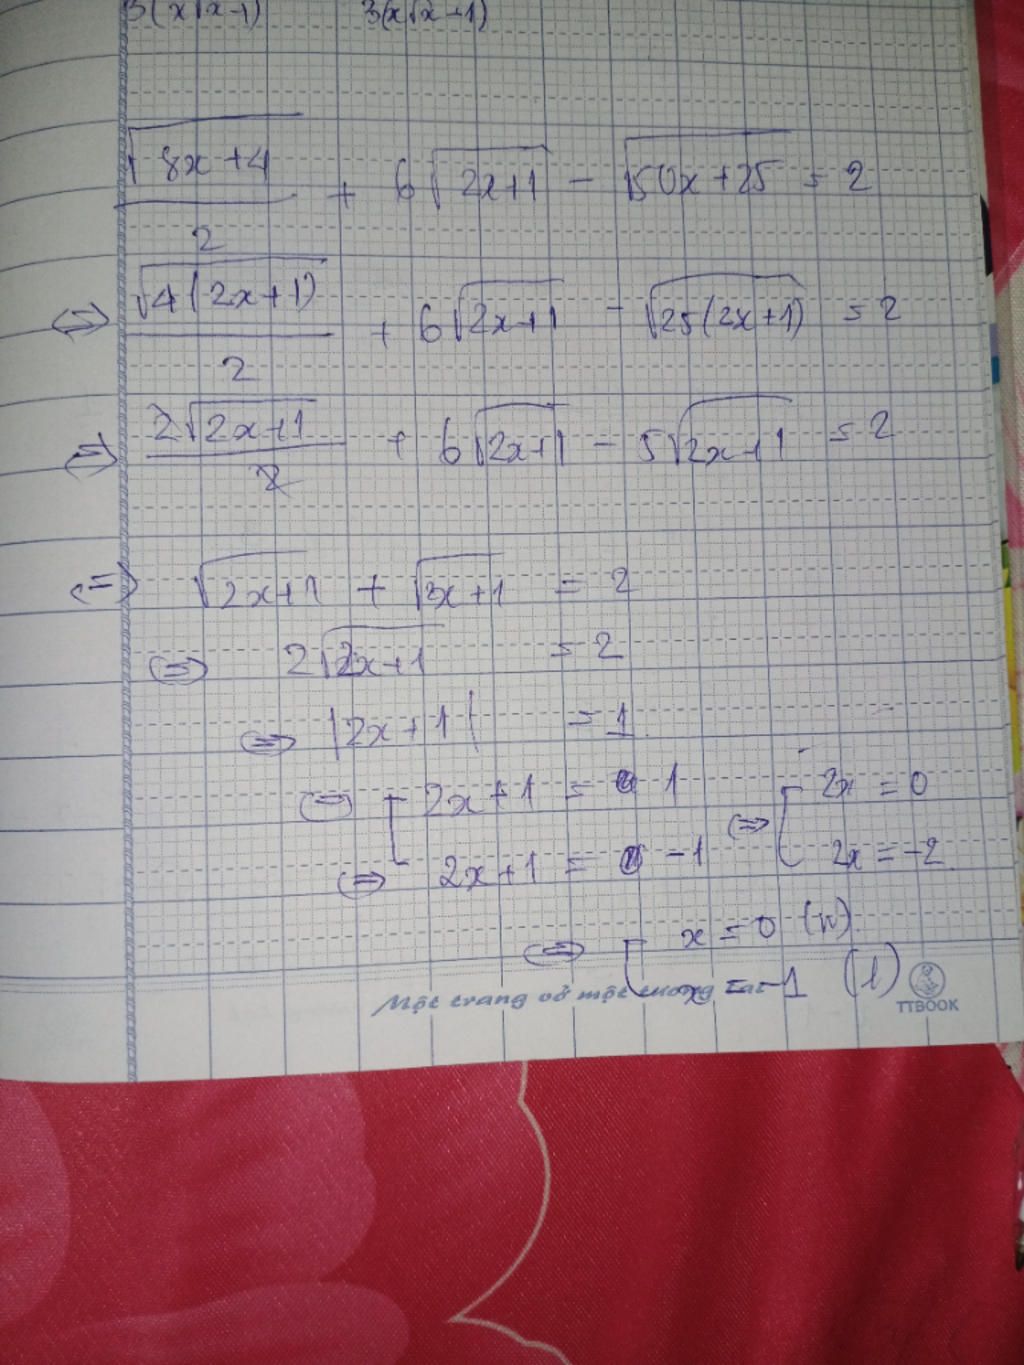 3(x√x-1) 3(x√x-1)
√8x+4 / 2 + 6√2x+1 - √50x+25 = 2
⇔ √4(2x+1) / 2 + 6√2x+1 - √25(2x+1) = 2
⇔ 2√2x+1 / 2 + 6√2x+1 - 5√2x+1 = 2
⇔ √2x+1 + √3x+1 = 2
⇔ 2√2x+1 = 2
⇔ |2x+1| = 1
⇔ [ 2x+1 = 1 ⇔ [ 2x = 0
⇔ 2x+1 = -1 2x = -2
⇔ [ x = 0 (n)
x = -1 (l)
Một trang vở một tương lai
TTBOOK